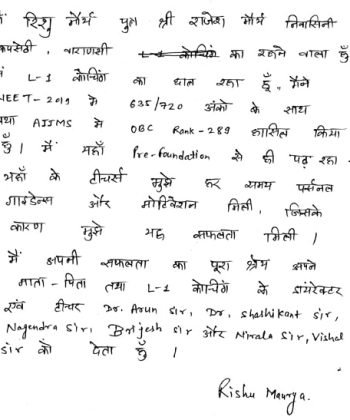 मैं रिशु मौर्य पुत्र श्री राजेश मौर्य निवासिनी
कपसेठी, वाराणसी L-1 कोचिंग का रहने वाला हूँ
मैं L-1 कोचिंग का छात्र रहा हूँ, मैंने
NEET-2019 में 635/720 अंकों के साथ
तथा AIIMS में OBC Rank-289 हासिल किया
हूँ। मैं यहाँ Pre-foundation से ही पढ़ रहा
यहाँ के टीचर्स मुझे हर समय पर्सनल
गाइडेन्स और मोटिवेशन मिली, जिसके
कारण मुझे यह सफलता मिली।
मैं अपनी सफलता का पूरा श्रेय अपने
माता-पिता तथा L-1 कोचिंग के डायरेक्टर
एवं टीचर Dr. Arun Sir, Dr. Shashikant Sir,
Nagendra Sir, Brijesh Sir और Nirala Sir, Vishal
Sir को देता हूँ।
Rishu Maurya.